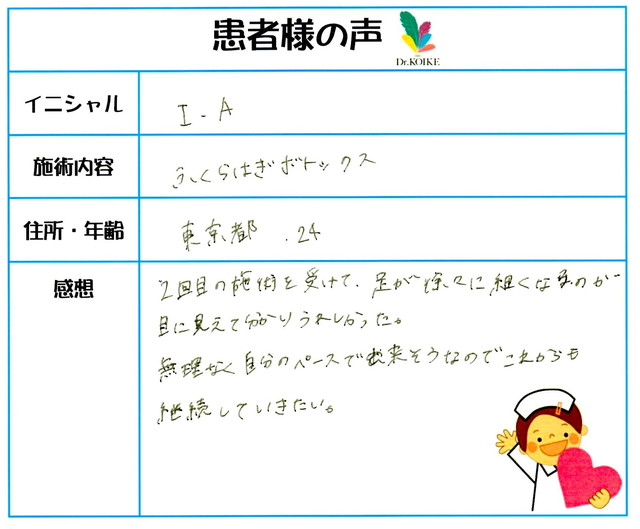 患者様の声
Dr.KOIKE
イニシャル
I-A
施術内容
ふくらはぎボトックス
住所・年齢
東京都 .24
感想
2回目の施術を受けて、足が徐々に細くなるのが
目に見えて分かりうれしかった。
無理なく自分のペースで出来そうなのでこれからも
継続していきたい。